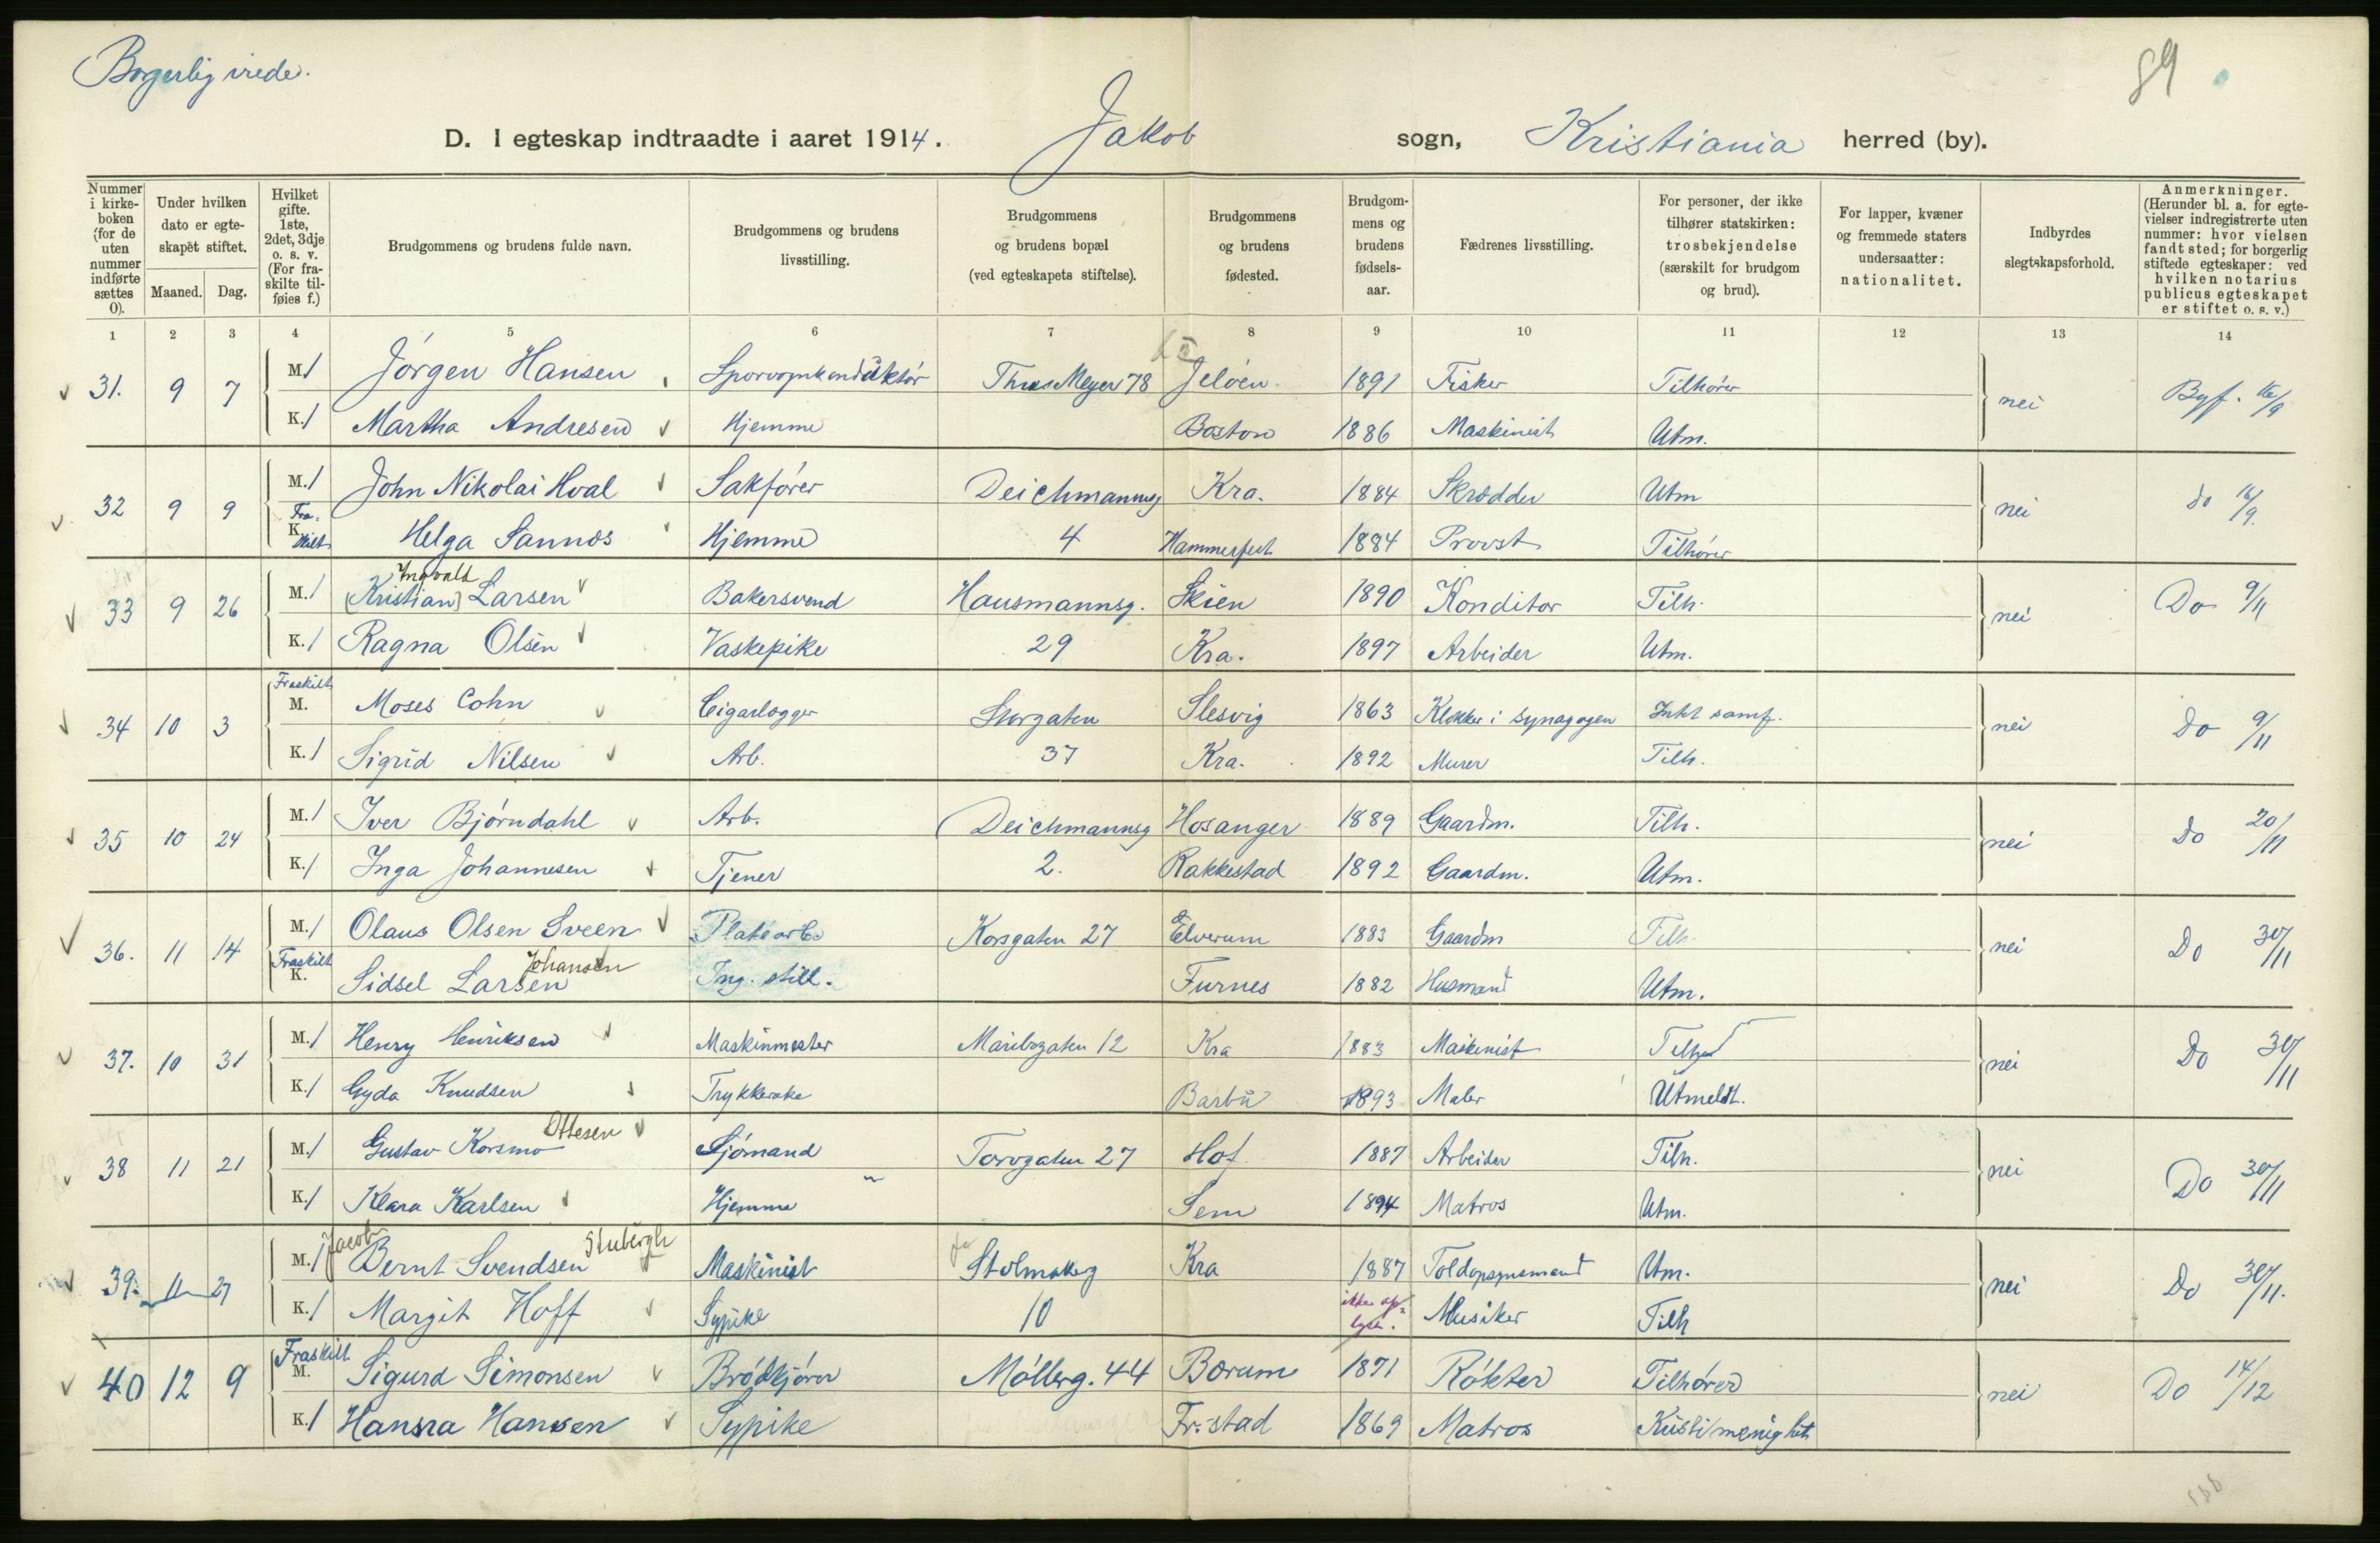 Borgerlig viede.
89
D. I egteskap indtraadte i aaret 1914. Jakob sogn, Kristiania herred (by).
Nummer i kirkeboken (for de uten nummer indførte sættes 0).
Under hvilken dato er egteskapet stiftet.
Maaned. Dag.
Hvilket gifte. 1ste, 2det, 3dje o. s. v. (For fraskilte tilføies f.)
Brudgommens og brudens fulde navn.
Brudgommens og brudens livsstilling.
Brudgommens og brudens bopæl (ved egteskapets stiftelse).
Brudgommens og brudens fødested.
Brudgommens og brudens fødselsaar.
Fædrenes livsstilling.
For personer, der ikke tilhører statskirken: trosbekjendelse (særskilt for brudgom og brud).
For lapper, kvæner og fremmede staters undersaatter: nationalitet.
Indbyrdes slegtskapsforhold.
Anmerkninger. (Herunder bl. a. for egtevielser indregistrerte uten nummer: hvor vielsen fandt sted; for borgerlig stiftede egteskaper: ved hvilken notarius publicus egteskapet er stiftet o. s. v.)
1 2 3 4 5 6 7 8 9 10 11 12 13 14
31. 9 7 M. 1 Jørgen Hansen Sporvognkonduktør Thves Meyer 78 Jeløen. 1891 Fisker Tilhører nei Byf. 16/9
K. 1 Martha Andresen Hjemme Boston 1886 Maskinist Utm.
32 9 9 M. 1 John Nikolai Hval Sakfører Deichmannsg Kra. 1884 Skrædder Utm nei do 16/9.
Fraskilt K. Helga Sannes Hjemme 4 Hammerfest 1884 Provst Tilhører
33 9 26 M. 1 (Kristian) Ingvald Larsen Bakersvend Hausmannsg. Skien 1890 Konditor Tilh. nei Do 9/11
K. 1 Ragna Olsen Vaskepike 29 Kra. 1897 Arbeider Utm.
34 10 3 Fraskilt M. Moses Cohn Cigarlægger Storgaten Slesvig 1863 Klokker i synagogen samf. nei Do 9/11
K. 1 Sigrid Nilsen Arb. 37 Kra. 1892 Murer Tilh.
35 10 24 M. 1 Iver Bjørndahl Arb. Deichmannsg Hosanger 1889 Gaardm. Tilh. nei Do 20/11
K. 1 Inga Johannesen Tjener 2. Rakkestad 1892 Gaardm. Utm.
36. 11 14 M. 1 Olaus Olsen Sveen Platearb. Korsgaten 27 Elverum 1883 Gaardm Tilh. nei Do 30/11
Fraskilt K. Sidsel Larsen Johansen Ing. still. Furnes 1882 Husmand Utm.
37. 10 31 M. 1 Henry Henriksen Maskinmester Maribogaten 12 Kra 1883 Maskinist nei Do 30/11
K. 1 Gyda Knudsen Trykkerske Barbu 1893 Maler Utmeldt.
38 11 21 M. 1 Gustav Korsmo Ottesen Sjømand Torvgaten 27 Hof 1887 Arbeider Tilh. nei Do 30/11
K. 1 Klara Karlsen Hjemme Sem 1894 Matros Utm.
39. 11 27 M. 1 Jacob Bernt Svendsen Stubergh Maskinist Stolmakerg Kra 1887 Toldopsynsmand Utm. nei Do 30/11.
K. 1 Margit Hoff Sypike 10 ikke oplyst. Musiker Tilh
40 12 9 Fraskilt M. Sigurd Simonsen Brødkjører Møllerg. 44 Bærum 1871 Røkter Tilhører nei Do 14/12
K. 1 Hansra Hansen Sypike Fr.stad 1869 Matros Kristi menighet